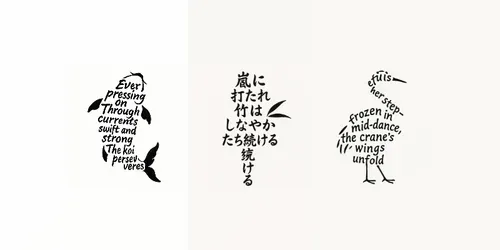 Ever
pressing
on
Through
currents
swift and
strong
The koi
persev
veres
嵐に
打たれ
竹は
しなやか
たち続ける
続
ける
her step—
frozen in
mid-dance,
the crane's
wings
unfold